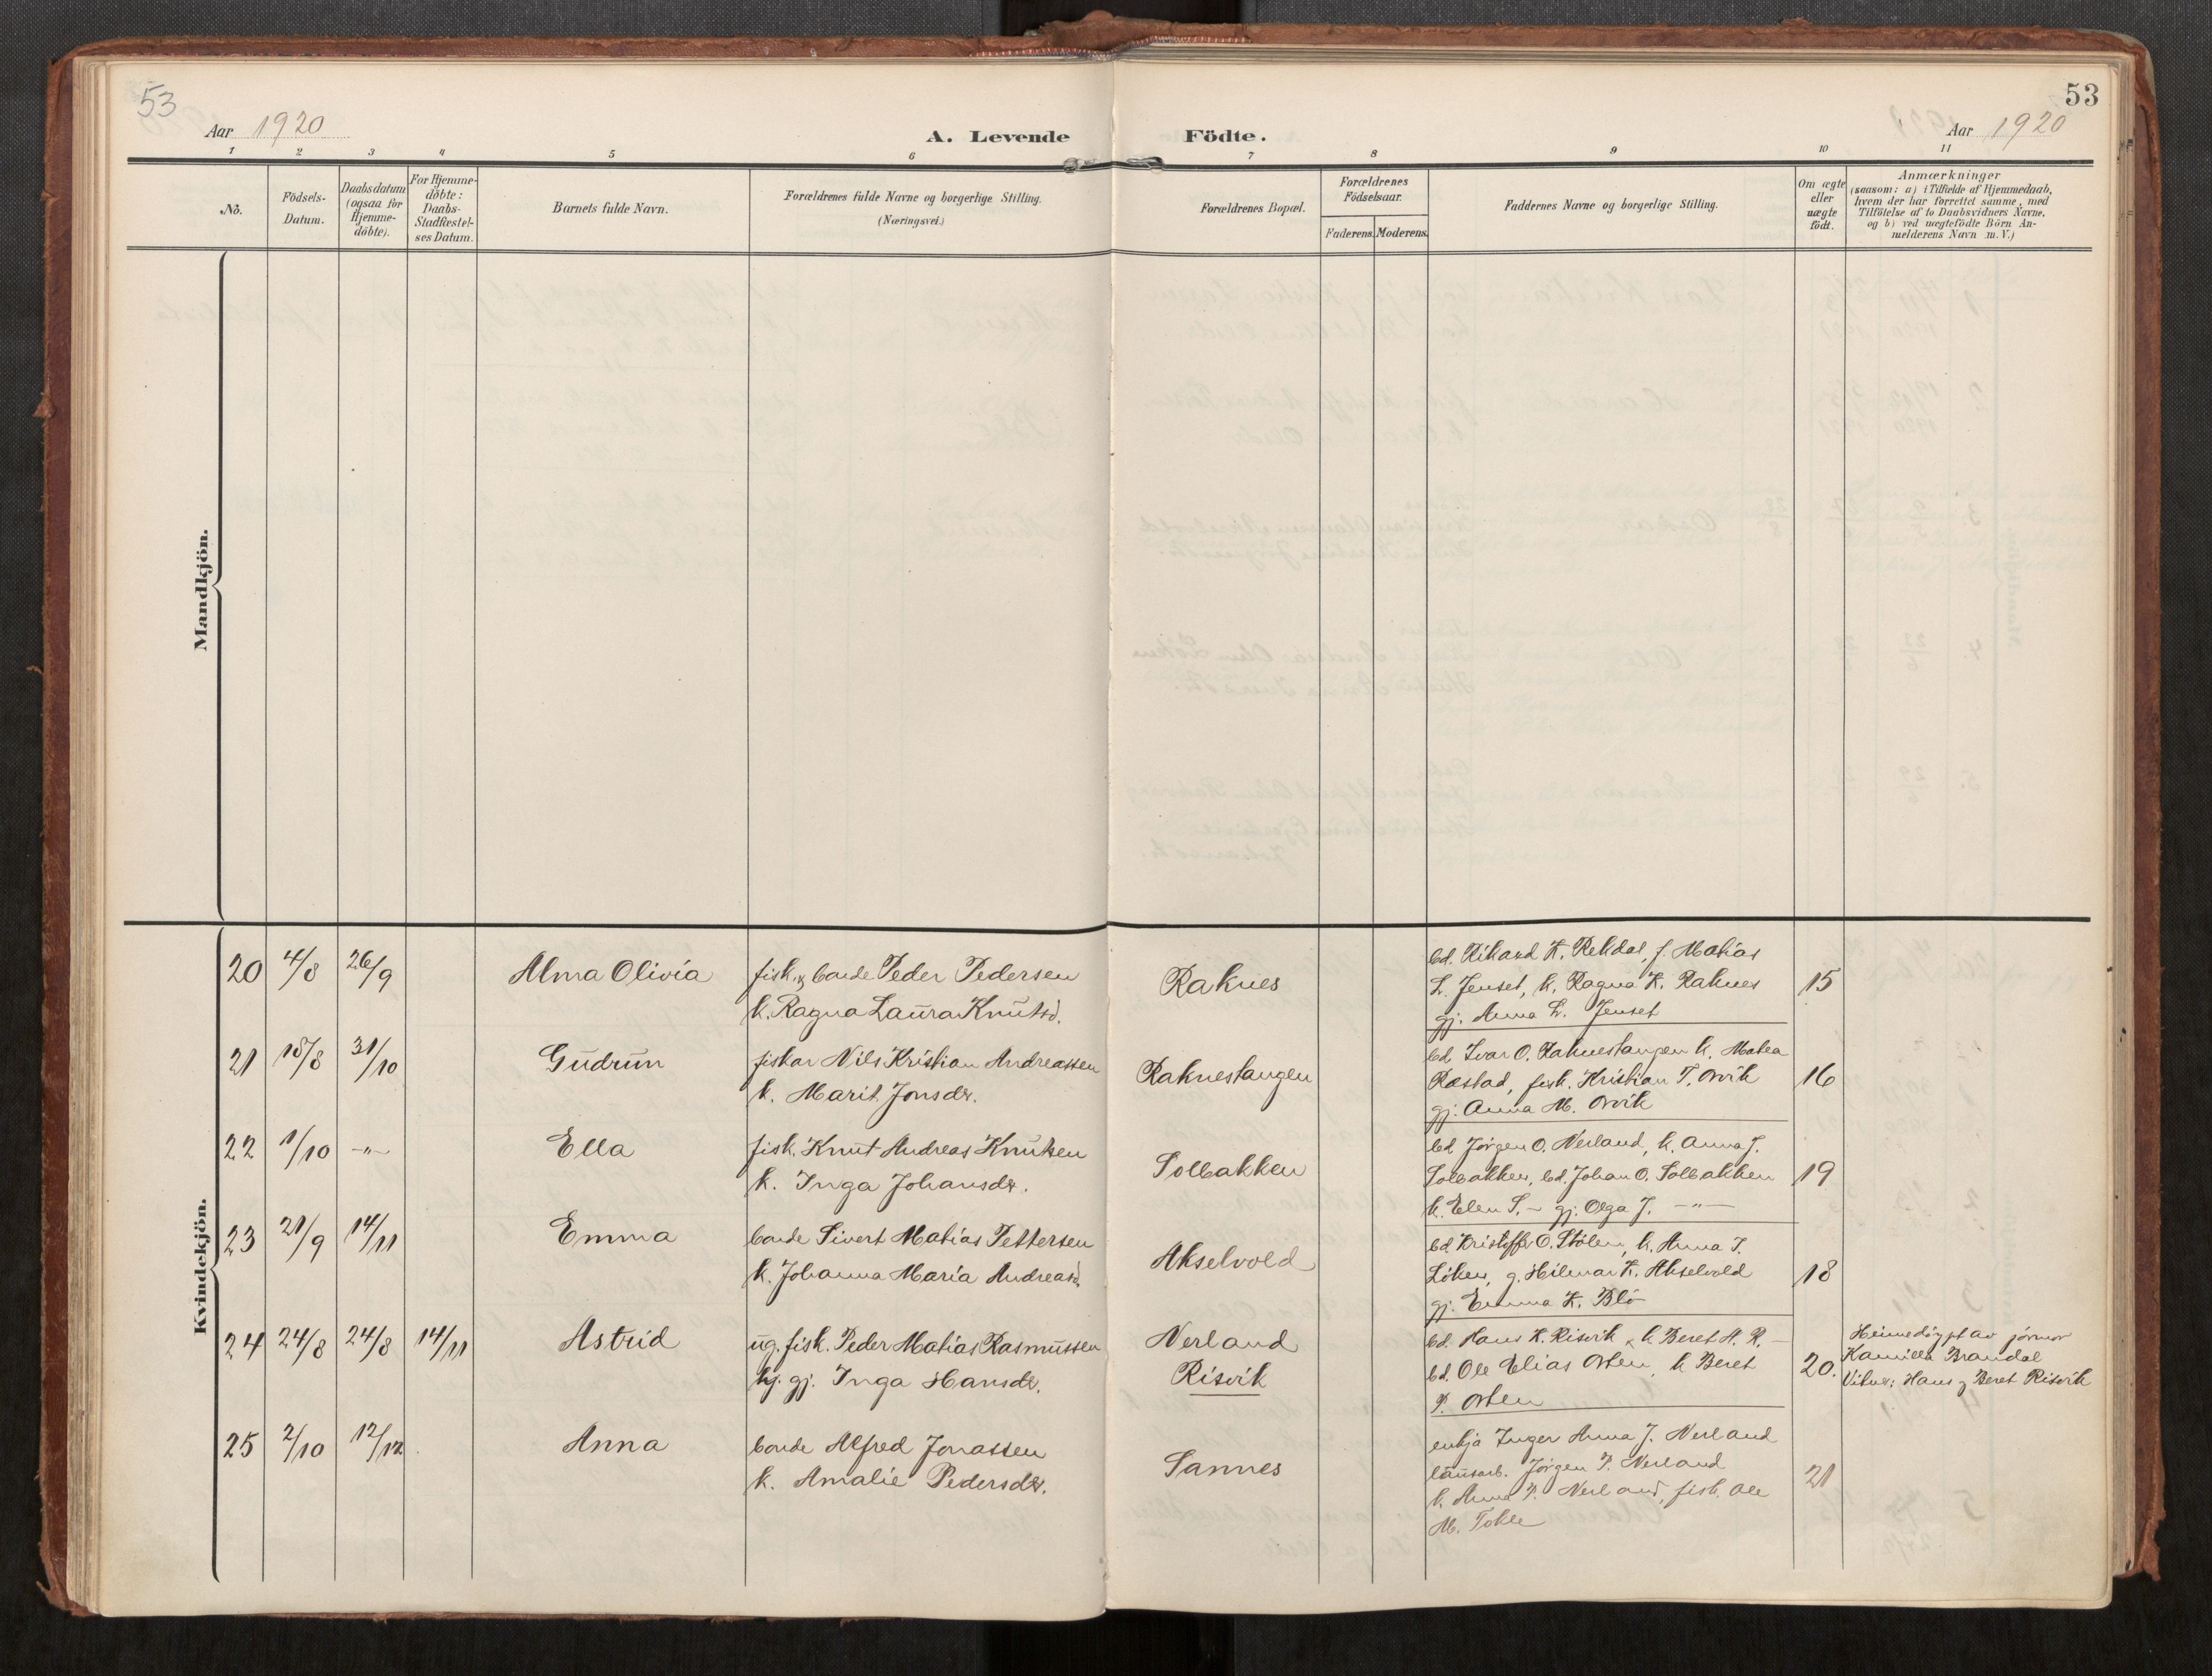 53
53
Aar 1920
A. Levende Födte.
Aar 1920
1 2 3 4 5 6 7 8 9 10 11
No.
Födsels-
Datum.
Daabsdatum
(ogsaa for
Hjemme-
döbte).
For Hjemme-
döbte:
Daabs-
Stadfæstel-
ses Datum.
Barnets fulde Navn.
Forældrenes fulde Navne og borgerlige Stilling.
(Næringsvei.)
Forældrenes Bopæl.
Forældrenes
Födselsaar.
Faderens.
Moderens.
Faddernes Navne og borgerlige Stilling.
Om ægte
eller
uægte
födt.
Anmærkninger
(saasom: a) i Tilfælde af Hjemmedaab,
hvem der har forrettet samme, med
Tilföielse af to Daabsvidners Navne,
og b) ved uægtefödte Börn An-
melderens Navn m. V.)
Mandkjön.
Kvindekjön.
20 4/8 26/9 Alma Olivia
fisk. & bonde Peder Pedersen
k. Ragna Laura Knutsd.
Raknes
bd. Rikard K. Rekdal, f. Matias
L. Jenset, k. Ragna K. Raknes
gj. Anna L. Jenset
15
21 18/8 31/10 Gudrun
fiskar Nils Kristian Andreassen
k. Marit Jonsdr.
Raknestangen
bd. Ivar O. Raknestangen k. Matea
Ræstad, fisk. Kristian T. Orvik
gj. Anna M. Orvik
16
22 1/10 -"- Ella
fisk. Knut Andreas Knutsen
k. Inga Johansdr.
Solbakken
bd. Jørgen O. Nerland, k. Anna J.
Solbakken, bd. Johan O. Solbakken
k. Elen S. - gj. Olga J. -"-
19
23 21/9 14/11 Emma
bonde Sivert Matias Pettersen
k. Johanna Maria Andreasd.
Akselvold
bd. Kristoffer O. Stölen, k. Anna T.
Löken, g. Hilmar K. Akselvold
gj. Emma K. Blö
18
24 24/8 24/8 14/11 Astrid
ug. fisk. Peder Matias Rasmussen
gj. Inga Hansdr.
Nerland
Risvik
bd. Hans K. Risvik & k. Beret H. R. -
bd. Ole Elias Orten, k. Beret
P. Orten
20.
Heimedøypt av jormor
Kamilla Brandal
Vitner: Hans og Beret Risvik
25 2/10 12/12 Anna
bonde Alfred Jonassen
k. Amalie Pedersdr.
Sannes
enkja Inger Anna J. Nerland
lausarb. Jörgen P. Nerland
k. Anna P. Nerland, fisk. Ole
M. Tokle
21